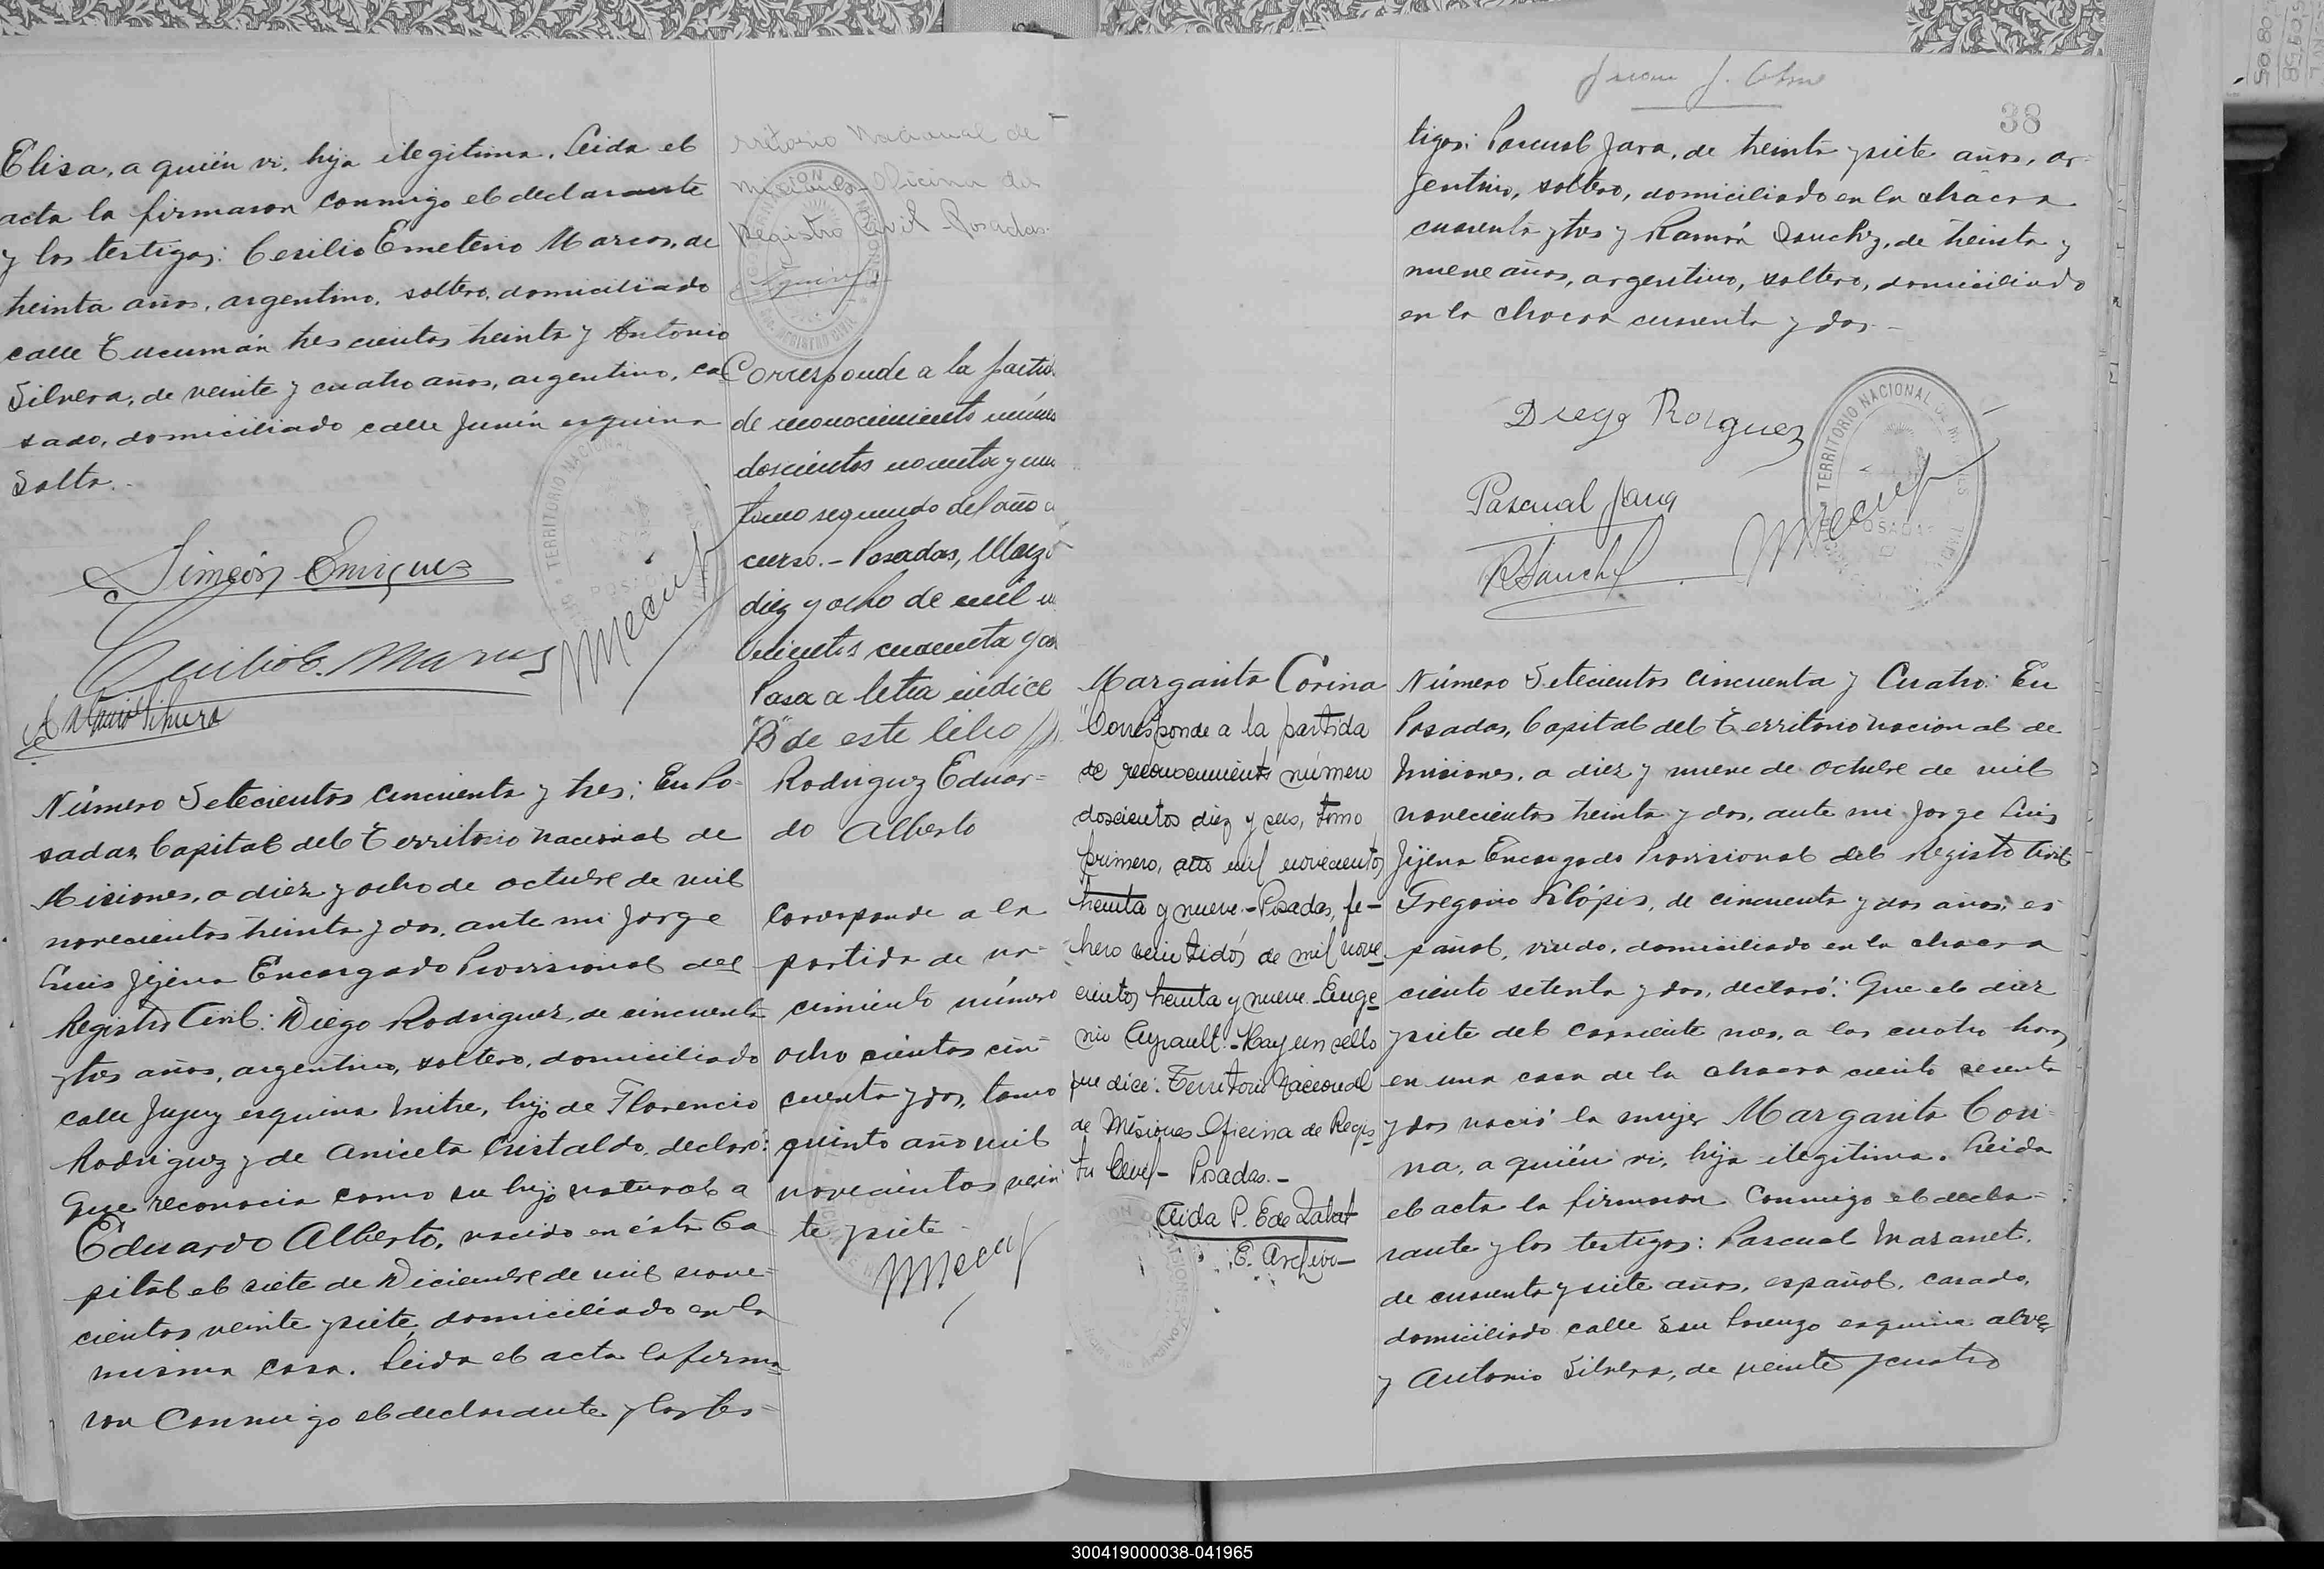 Elisa, a quién vi, hija ilegitima. Leida el
acta la firmaron conmigo el declarante
y los testigos: Cesilio Emeterio Marcos, de
treinta años, argentino, soltero, domiciliado
calle Tucumán trescientos treinta y Antonio
Silvera, de veinte y cuatro años, argentino, ca
sado, domiciliado calle Junín esquina
Salta.-
Simeón Enriquez
Número Setecientos cincuenta y tres: En Po-
sadas Capital del Territorio Nacional de
Misiones, a diez y ocho de octubre de mil
novecientos treinta y dos, ante mi Jorge
Luis Jijena Encargado Provisional del
Registro Civil: Diego Rodriguez, de cincuenta
y tres años, argentino, soltero, domiciliado
calle Jujuy esquina Mitre, hijo de Florencio
Rodriguez y de Aniceta Cristaldo, declaró:
Que reconocia como su hijo natural a
Eduardo Alberto, nacido en ésta Ca-
pital el siete de Diciembre de mil nove-
cientos veinte y siete, domiciliado en la
misma casa. Leida el acta la firma=
ron conmigo el declarante y los tes-
rritorio Nacional de
Misiones - Oficina del
Registro Civil - Posadas.
Corresponde a la partid
de reconocimiento número
doscientos noventa y un
tomo segundo del año
curso.- Posadas, Marzo
diez y ocho de mil
cientos cuarenta y
Pasa a letra indice
"B" de este libro
Rodriguez Eduar=
do Alberto
Corresponde a la
partida de na-
cimiento número
ocho cientos cin-
cuenta y dos, tomo
quinto año mil
novecientos vein
te y siete
38
tigos: Pascual Jara, de treinta y siete años, ar-
gentino, soltero, domiciliado en la chacra
cuarenta y tres y Ramón Sanchez, de treinta y
nueve años, argentino, soltero, domiciliado
en la chacra cuarenta y dos.-
Diego Rorguez
Pascual Jara
R Sanchez
TERRITORIO NACIONAL DE MISIONES
POSADAS
Margarita Corina
"Corresponde a la partida
de reconocimiento número
doscientos diez y seis, tomo
primero, año mil novecientos
treinta y nueve.- Posadas, fe-
brero veintidós de mil nove
cientos treinta y nueve. Euge=
nio Ayrault.- Hay un sello
que dice: Territorio Nacional
de Misiones Oficina de Regis
tro Civil - Posadas.-
Aida P. E de Zabat
E. Archivo-
Número Setecientos cincuenta y Cuatro: En
Posadas, Capital del Territorio Nacional de
Misiones, a diez y nueve de octubre de mil
novecientos treinta y dos, ante mi Jorge Luis
Jijena Encargado Provisional del Registro Civil
Gregorio Klópis, de cincuenta y dos años, es
pañol, viudo, domiciliado en la chacra
ciento setenta y dos, declaró: Que el diez
y siete del corriente mes, a las cuatro horas
en una casa de la chacra ciento setenta
y dos nació la mujer Margarita Cori-
na, a quién vi, hija ilegitima. Leida
el acta la firmaron conmigo el decla=
rante y los testigos: Pascual Masanet,
de cuarenta y siete años, español, casado,
domiciliado calle San Lorenzo esquina Alvear
y Antonio Silvera, de veinte y cuatro
300419000038-041965